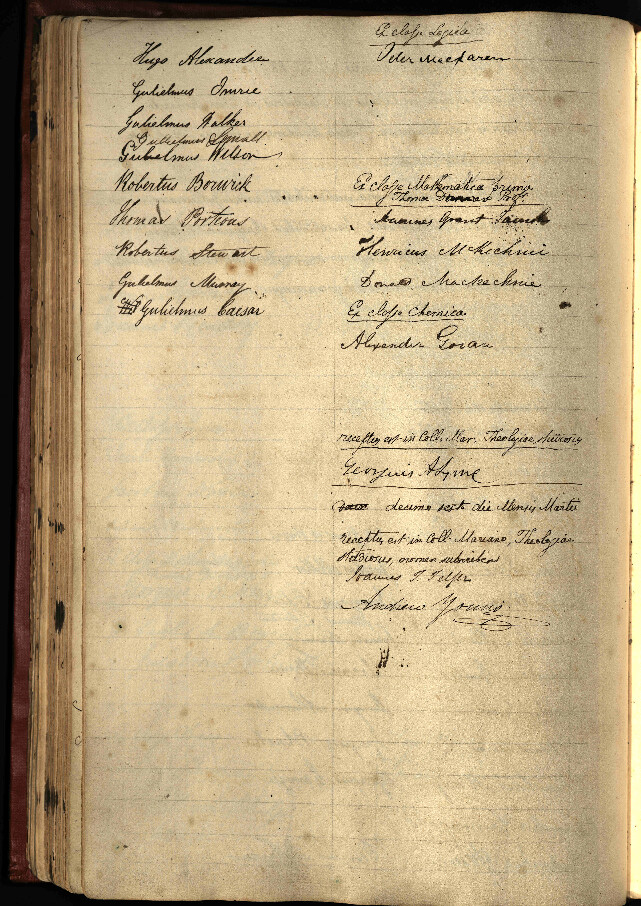 Hugo Alexander
Gulielmus Imrie
Gulielmus Walker
Gulielmus Small
Gulielmus Wilson
Robertus Borwick
Thomas Porteous
Robertus Stewart
Gulielmus Murray
Gulielmus Caesar
Ex classe Logica
Peter MacLaren
Ex classe Mathematica primo
Thoma Duncan Prof.
Joannes Grant
Henricus McKechnie
Donald MacKechnie
Ex classe Chemica
Alexander
receptus est in Coll. Mar. Theologiae studiosus
Georgius
decimo sext die Mensis Martii
receptus est in Coll. Mariano, Theologiae
studiosus, nomen subscribens
Joannes T. Telfer
Andrew Young